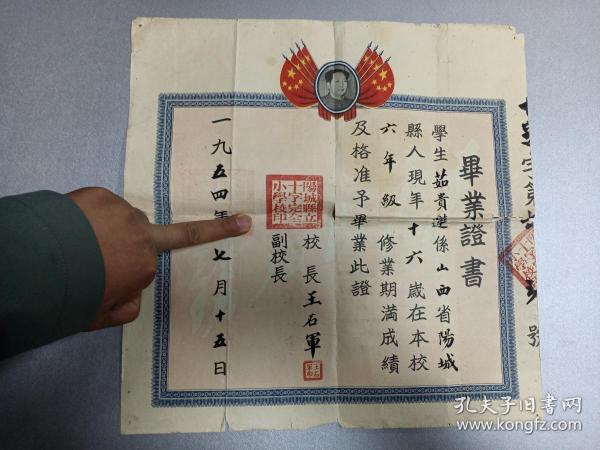 畢業證書
學生茹貴蓮係山西省陽城
縣人現年十六歲在本校
六年級修業期滿成績
及格准予畢業此證
校長王石軍
副校長
陽城縣立
十字完全
小學校印
一九五四年七月十五日
字第
號
孔夫子旧书网
www.kongfz.com